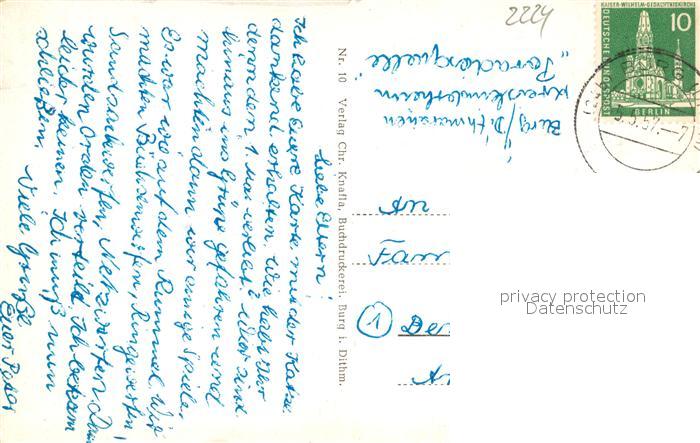 2224
KAISER-WILHELM-GEDÄCHTNISKIRCHE
10
DEUTSCHE BUNDESPOST
BERLIN
5.57.-7
Liebe Eltern!
Ich habe Eure Karte mit der Katze
dankend erhalten. Wie habt Ihr
denn den 1. Mai verlebt? Wir sind
hinaus ins Grüne gefahren und
machten dann einige Spiele.
Es war wie auf dem Rummel. Wir
machten Büchsenwerfen, Ringewerfen,
Sandsackwerfen, Netzwerfen. Dann
wurden Orden verteilt. Ich bekam
leider keinen. Ich muß nun
schließen.
Viele Grüße
Euer Peter
Nr. 10 Verlag Chr. Knafla, Buchdruckerei, Burg i. Dithm.
Burg/Dithmarschen
Kreiskinderheim
"Paradiesquelle"
An
Fam
1 Ber
privacy protection
Datenschutz